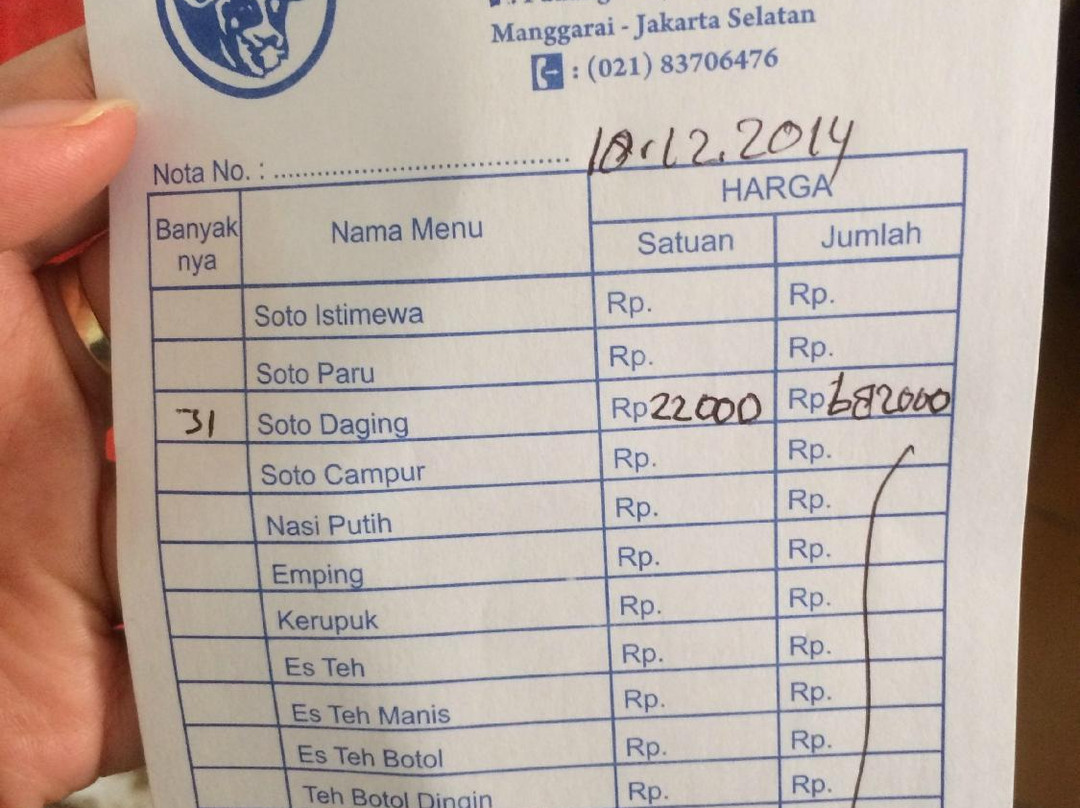 Manggarai - Jakarta Selatan
: (021) 83706476
Nota No. : .......................................... 18.12.2014
HARGA
Banyak nya Nama Menu Satuan Jumlah
Soto Istimewa Rp. Rp.
Soto Paru Rp. Rp.
31 Soto Daging Rp 22000 Rp 682000
Soto Campur Rp. Rp.
Nasi Putih Rp. Rp.
Emping Rp. Rp.
Kerupuk Rp. Rp.
Es Teh Rp. Rp.
Es Teh Manis Rp. Rp.
Es Teh Botol Rp. Rp.
Teh Botol Dingin Rp. Rp.